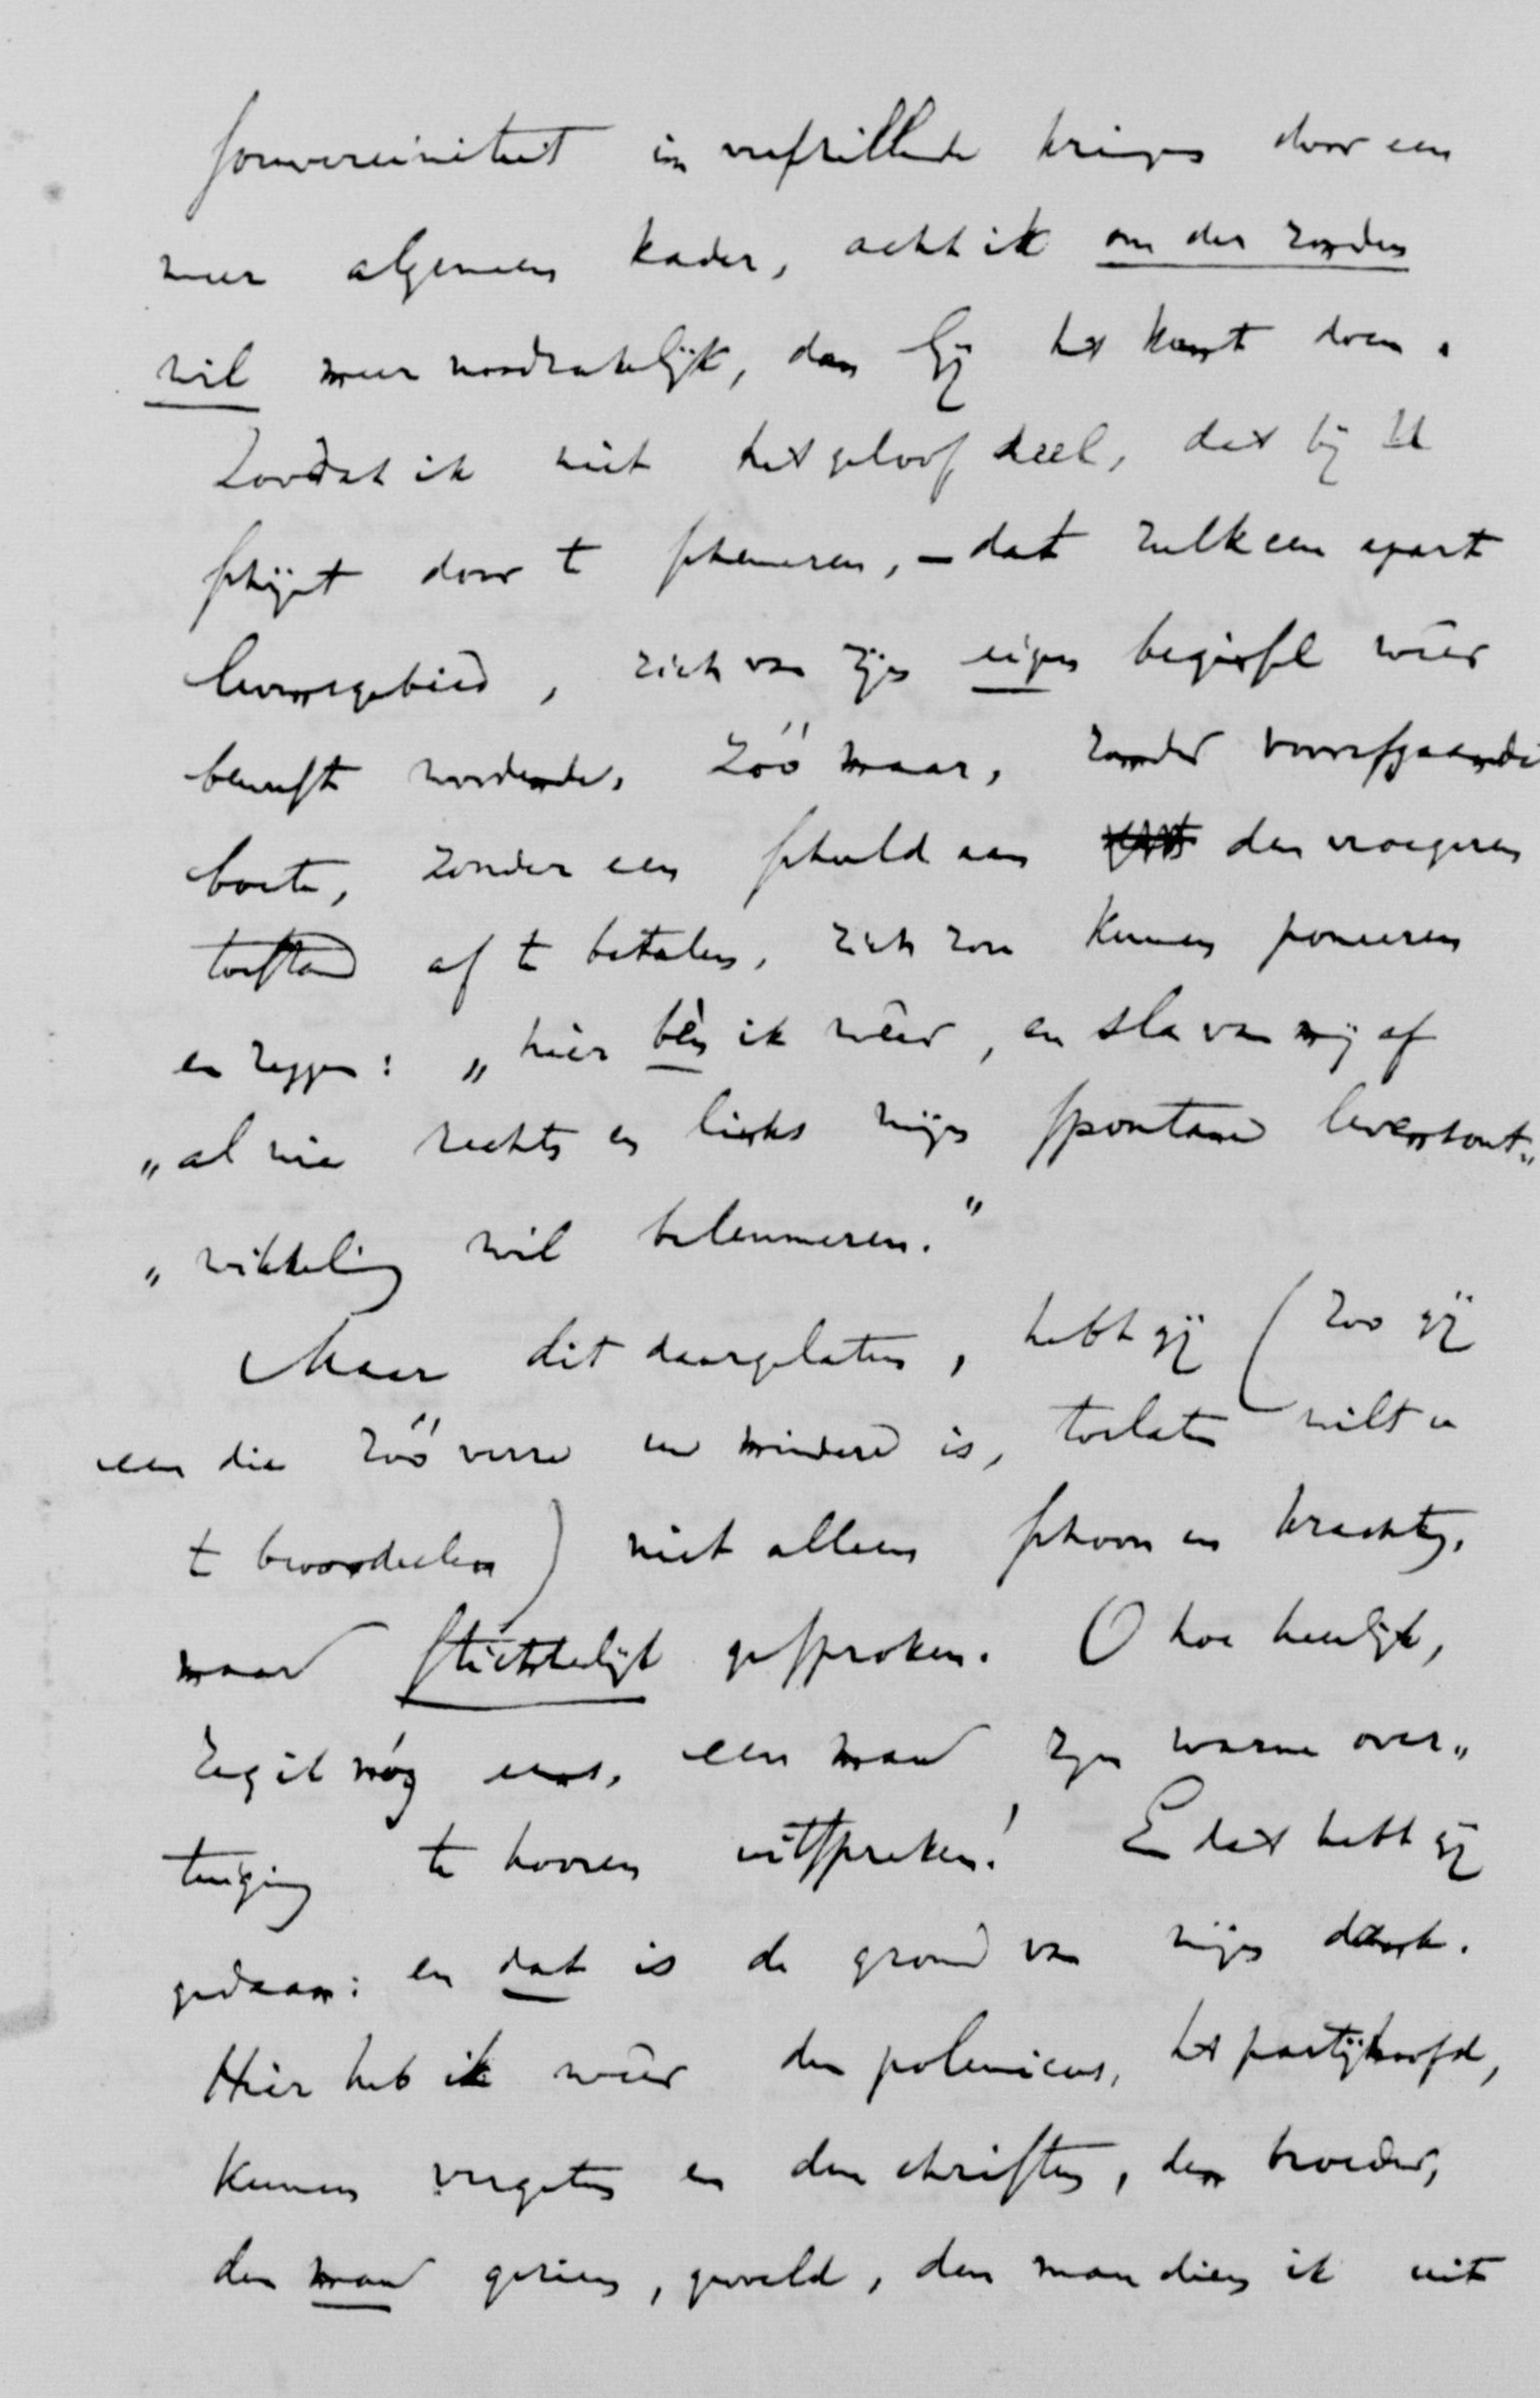 souvereiniteit in verschillende kringen door een
meer algemeen kader, acht ik om der zonden
wil meer noodzakelijk, dan Gij het kunt doen.
Zoodat ik niet het geloof deel, dat bij U
schijnt door te schemeren, – dat zulk een apart
levensgebied, zich van zijn eigen beginsel weêr
bewust wordende, zóó maar, zonder voorafgaande
boete, zonder een schuld aan den vroegeren
toestand af te betalen, zich zou kunnen poneeren
en zeggen: „hier bèn ik weêr, en sla van mij af
„al wie rechts en links mijn spontane levensont„
„wikkeling wil belemmeren."
Maar dit daargelaten, hebt gij (zoo gij
een die zóó verre uw mindere is, toelaten wilt u
te beoordeelen) niet alleen schoon en krachtig,
maar stichtelijk gesproken. O hoe heerlijk,
zeg ik nóg eens, een man zijn warme over„
tuiging te hooren uitspreken! En dat hebt gij
gedaan: en dat is de grond van mijn dank.
Hier heb ik weêr den polemicus, het partijhoofd,
kunnen vergeten en den christen, den broeder,
den man gezien, gevoeld, den man dien ik uit